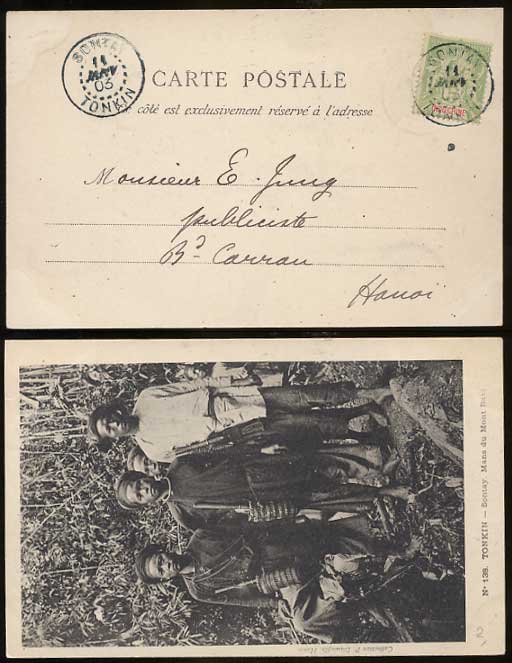 SONTAY
11
JANV
03
TONKIN
CARTE POSTALE
côté est exclusivement réservé à l'adresse
SONTAY
11
INDOCHINE
Monsieur E. Jung
publiciste
Bd Carrau
Hanoi
Nº 138. TONKIN — Sontay. Mans du Mont Bavi
Collection P. Dieulefils, Hanoi